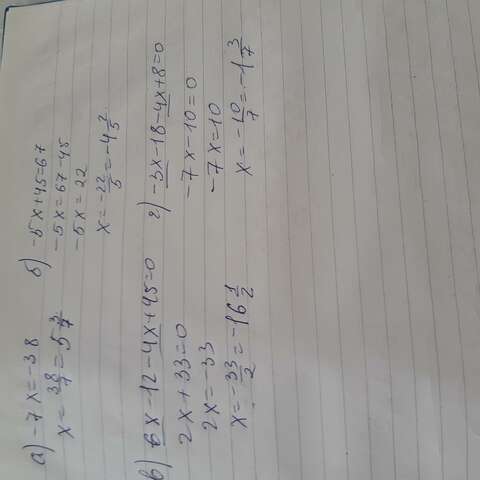 а) -7x=-38
x=38/7=5 3/7
б) -5x+45=67
-5x=67-45
-5x=22
x=-22/5=-4 2/5
в) 6x-12-4x+45=0
2x+33=0
2x=-33
x=-33/2=-16 1/2
г) -3x-18-4x+8=0
-7x-10=0
-7x=10
x=-10/7=-1 3/7